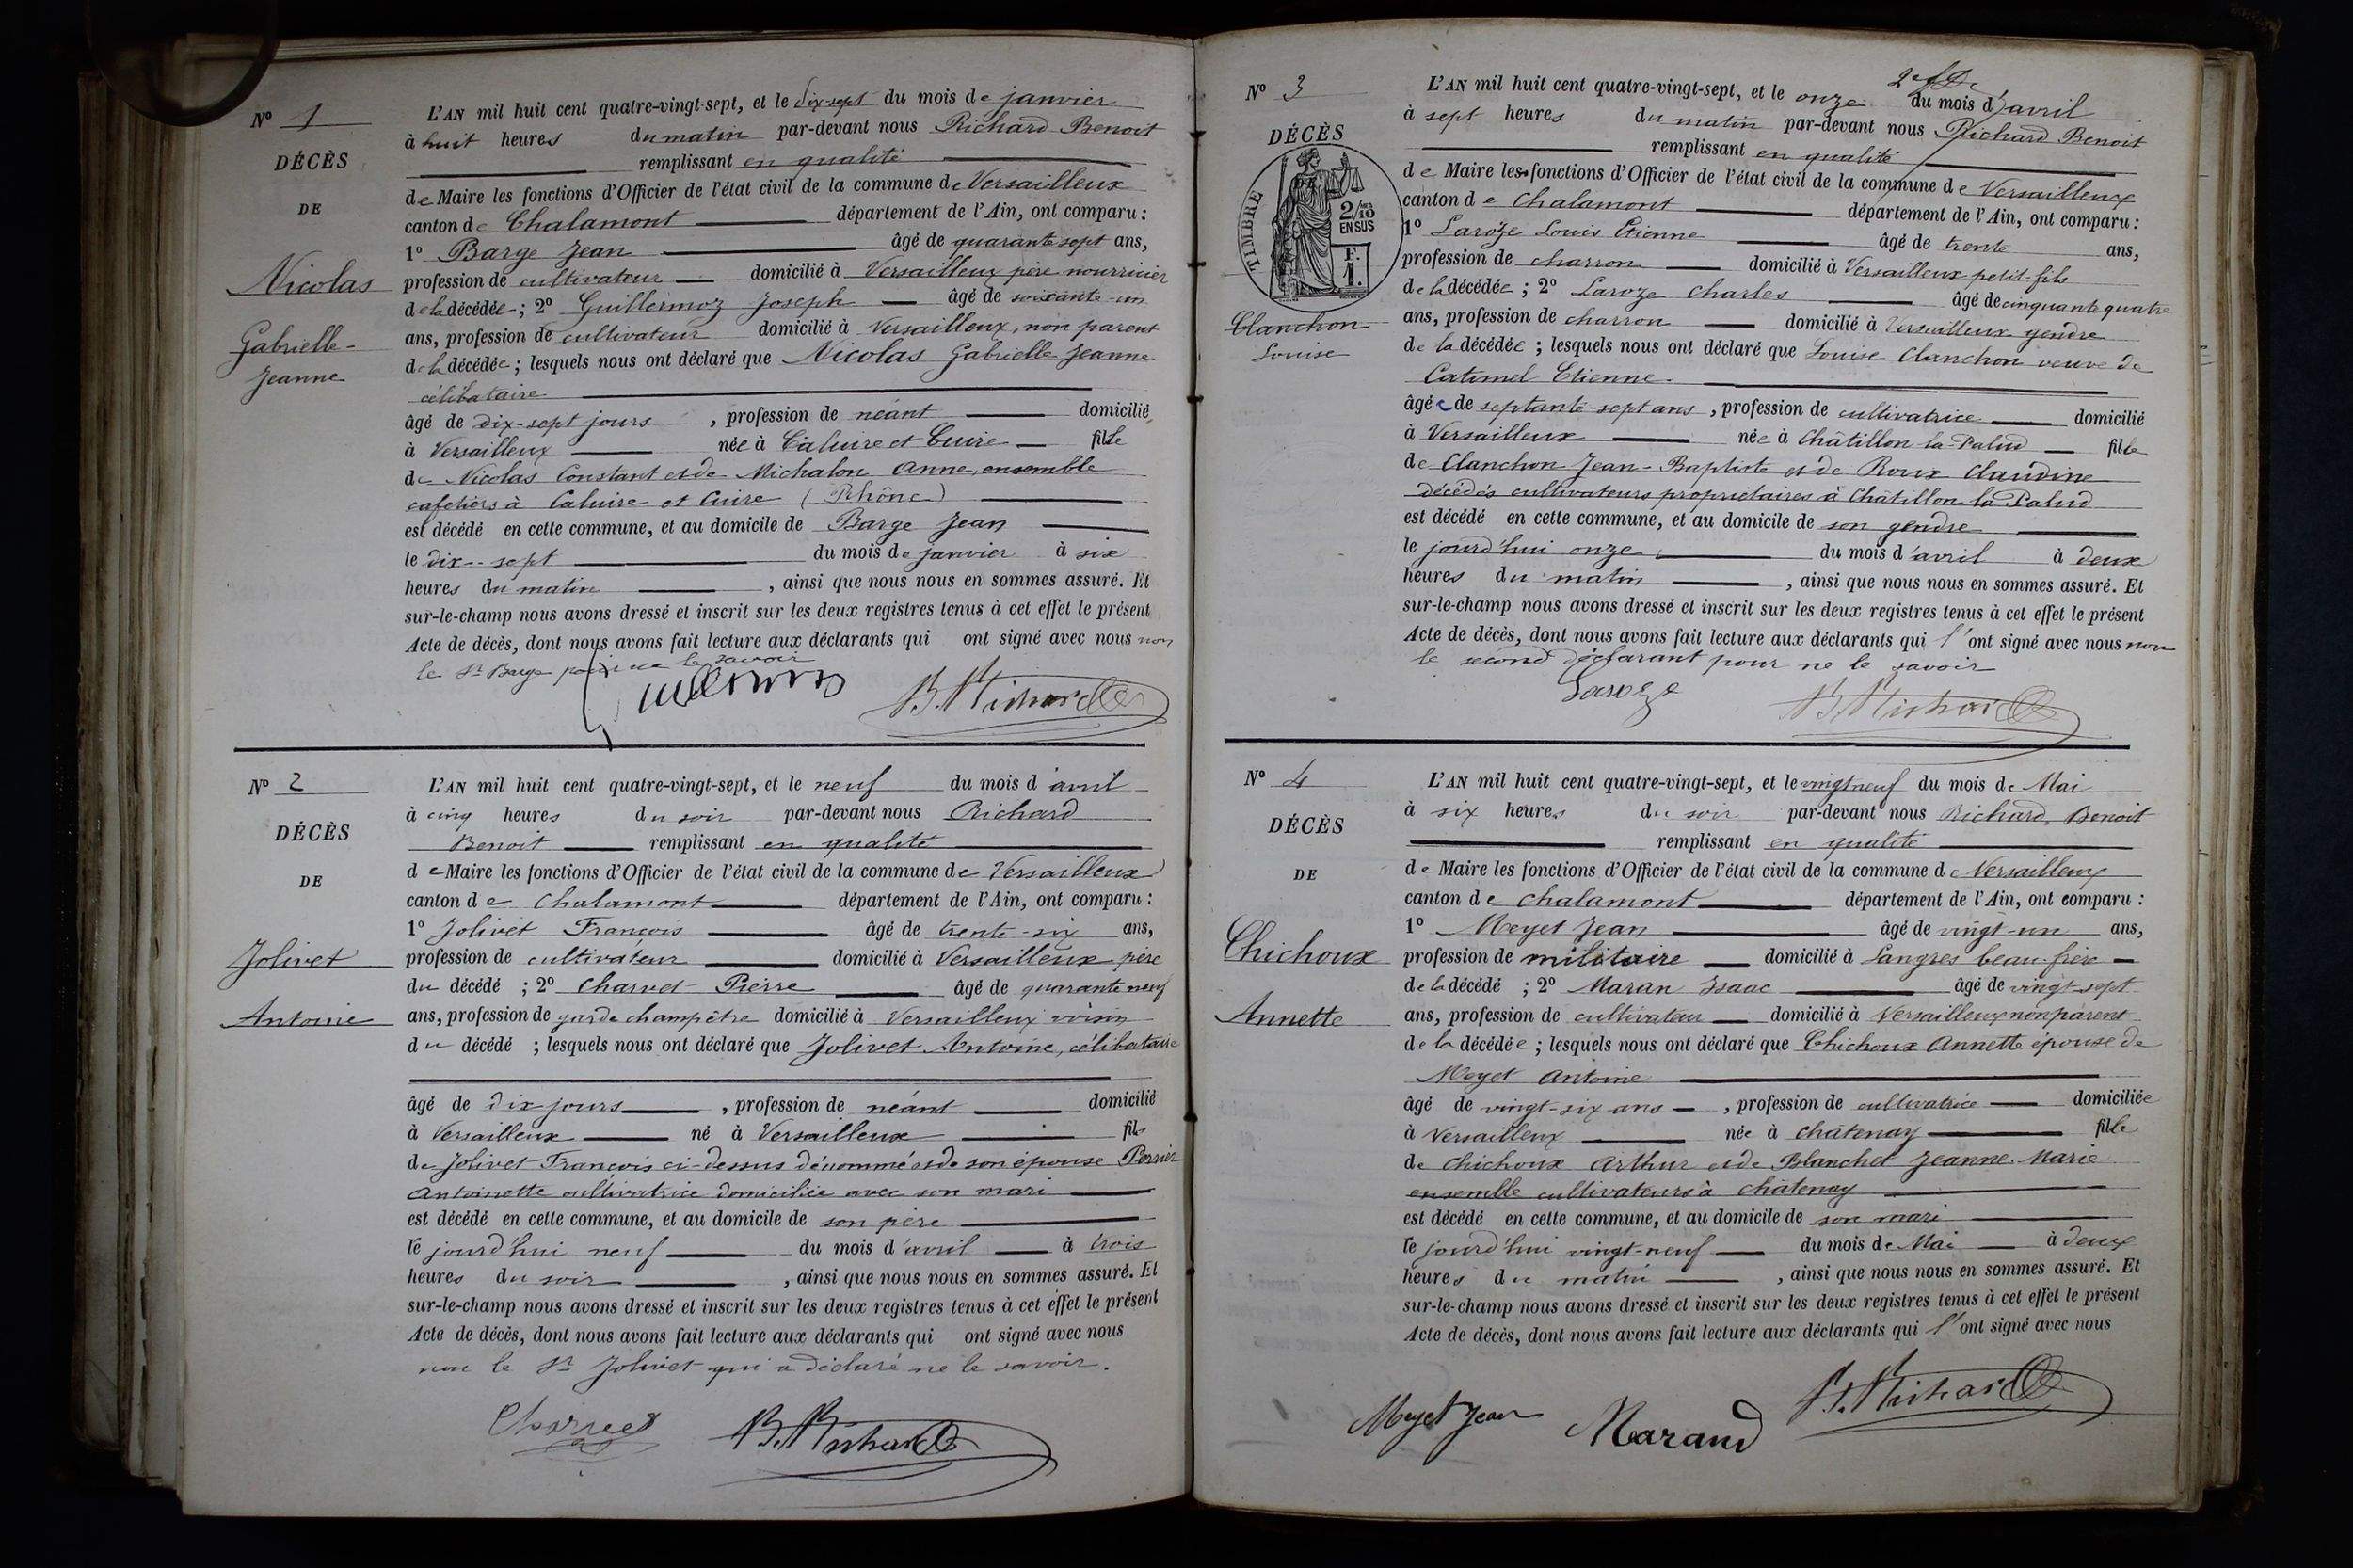 N° 1
DÉCÈS
DE
Nicolas
Gabrielle-
Jeanne
L'AN mil huit cent quatre-vingt-sept, et le dix-sept du mois de janvier
à huit heures du matin par-devant nous Richard Benoit
remplissant en qualité
de Maire les fonctions d'Officier de l'état civil de la commune de Versailleux
canton de Chalamont département de l'Ain, ont comparu :
1° Barge Jean âgé de quarante sept ans,
profession de cultivateur domicilié à Versailleux père nourricier
de la décédée ; 2° Guillermoz Joseph âgé de soixante-un
ans, profession de cultivateur domicilié à Versailleux, non parent
de la décédée ; lesquels nous ont déclaré que Nicolas Gabrielle Jeanne
célibataire
âgé de dix-sept jours , profession de néant domicilié
à Versailleux née à Caluire et Cuire fille
de Nicolas Constant et de Michalon Anne, ensemble
cafetiers à Caluire et Cuire (Rhône)
est décédé en cette commune, et au domicile de Barge Jean
le dix-sept du mois de janvier à six
heures du matin , ainsi que nous nous en sommes assuré. Et
sur-le-champ nous avons dressé et inscrit sur les deux registres tenus à cet effet le présent
Acte de décès, dont nous avons fait lecture aux déclarants qui ont signé avec nous non
le Sr Barge pour ne le savoir
B. Richard
N° 2
DÉCÈS
DE
Jolivet
Antoine
L'AN mil huit cent quatre-vingt-sept, et le neuf du mois d'avril
à cinq heures du soir par-devant nous Richard
Benoit remplissant en qualité
de Maire les fonctions d'Officier de l'état civil de la commune de Versailleux
canton de Chalamont département de l'Ain, ont comparu :
1° Jolivet François âgé de trente-six ans,
profession de cultivateur domicilié à Versailleux père
du décédé ; 2° Charvet Pierre âgé de quarante neuf
ans, profession de garde champêtre domicilié à Versailleux voisin
du décédé ; lesquels nous ont déclaré que Jolivet Antoine, célibataire
âgé de dix jours , profession de néant domicilié
à Versailleux né à Versailleux fils
de Jolivet François ci-dessus dénommé et de son épouse Perrier
Antoinette cultivatrice domiciliée avec son mari
est décédé en cette commune, et au domicile de son père
le jourd'hui neuf du mois d'avril à trois
heures du soir , ainsi que nous nous en sommes assuré. Et
sur-le-champ nous avons dressé et inscrit sur les deux registres tenus à cet effet le présent
Acte de décès, dont nous avons fait lecture aux déclarants qui ont signé avec nous
non le Sr Jolivet qui a déclaré ne le savoir.
Charvet B. Richard
N° 3
DÉCÈS
TIMBRE
2/10 EN SUS
F. 1.
Clanchon
Louise
L'AN mil huit cent quatre-vingt-sept, et le onze du mois d'avril
à sept heures du matin par-devant nous Richard Benoit
remplissant en qualité
de Maire les fonctions d'Officier de l'état civil de la commune de Versailleux
canton de Chalamont département de l'Ain, ont comparu :
1° Laroze Louis Etienne âgé de trente ans,
profession de charron domicilié à Versailleux petit-fils
de la décédée ; 2° Laroze Charles âgé de cinquante quatre
ans, profession de charron domicilié à Versailleux gendre
de la décédée ; lesquels nous ont déclaré que Louise Clanchon veuve de
Catimel Etienne.
âgée de septante-sept ans , profession de cultivatrice domicilié
à Versailleux née à Châtillon-la-Palud fille
de Clanchon Jean-Baptiste et de Roux Claudine
décédés cultivateurs propriétaires à Châtillon la Palud
est décédé en cette commune, et au domicile de son gendre
le jourd'hui onze du mois d'avril à deux
heures du matin , ainsi que nous nous en sommes assuré. Et
sur-le-champ nous avons dressé et inscrit sur les deux registres tenus à cet effet le présent
Acte de décès, dont nous avons fait lecture aux déclarants qui l'ont signé avec nous non
le second déclarant pour ne le savoir
Laroze B. Richard
N° 4
DÉCÈS
DE
Chichoux
Annette
L'AN mil huit cent quatre-vingt-sept, et le vingt neuf du mois de Mai
à six heures du soir par-devant nous Richard, Benoit
remplissant en qualité
de Maire les fonctions d'Officier de l'état civil de la commune de Versailleux
canton de Chalamont département de l'Ain, ont comparu :
1° Meyet Jean âgé de vingt-un ans,
profession de militaire domicilié à Langres beau-frère
de la décédé ; 2° Maran Isaac âgé de vingt-sept
ans, profession de cultivateur domicilié à Versailleux non parent
de la décédée ; lesquels nous ont déclaré que Chichoux Annette épouse de
Meyet Antoine
âgé de vingt-six ans , profession de cultivatrice domiciliée
à Versailleux née à Châtenay fille
de Chichoux Arthur et de Blanchet Jeanne Marie
ensemble cultivateurs à Châtenay
est décédé en cette commune, et au domicile de son mari
le jourd'hui vingt-neuf du mois de Mai à deux
heures du matin , ainsi que nous nous en sommes assuré. Et
sur-le-champ nous avons dressé et inscrit sur les deux registres tenus à cet effet le présent
Acte de décès, dont nous avons fait lecture aux déclarants qui l'ont signé avec nous
Meyet Jean Marand B. Richard